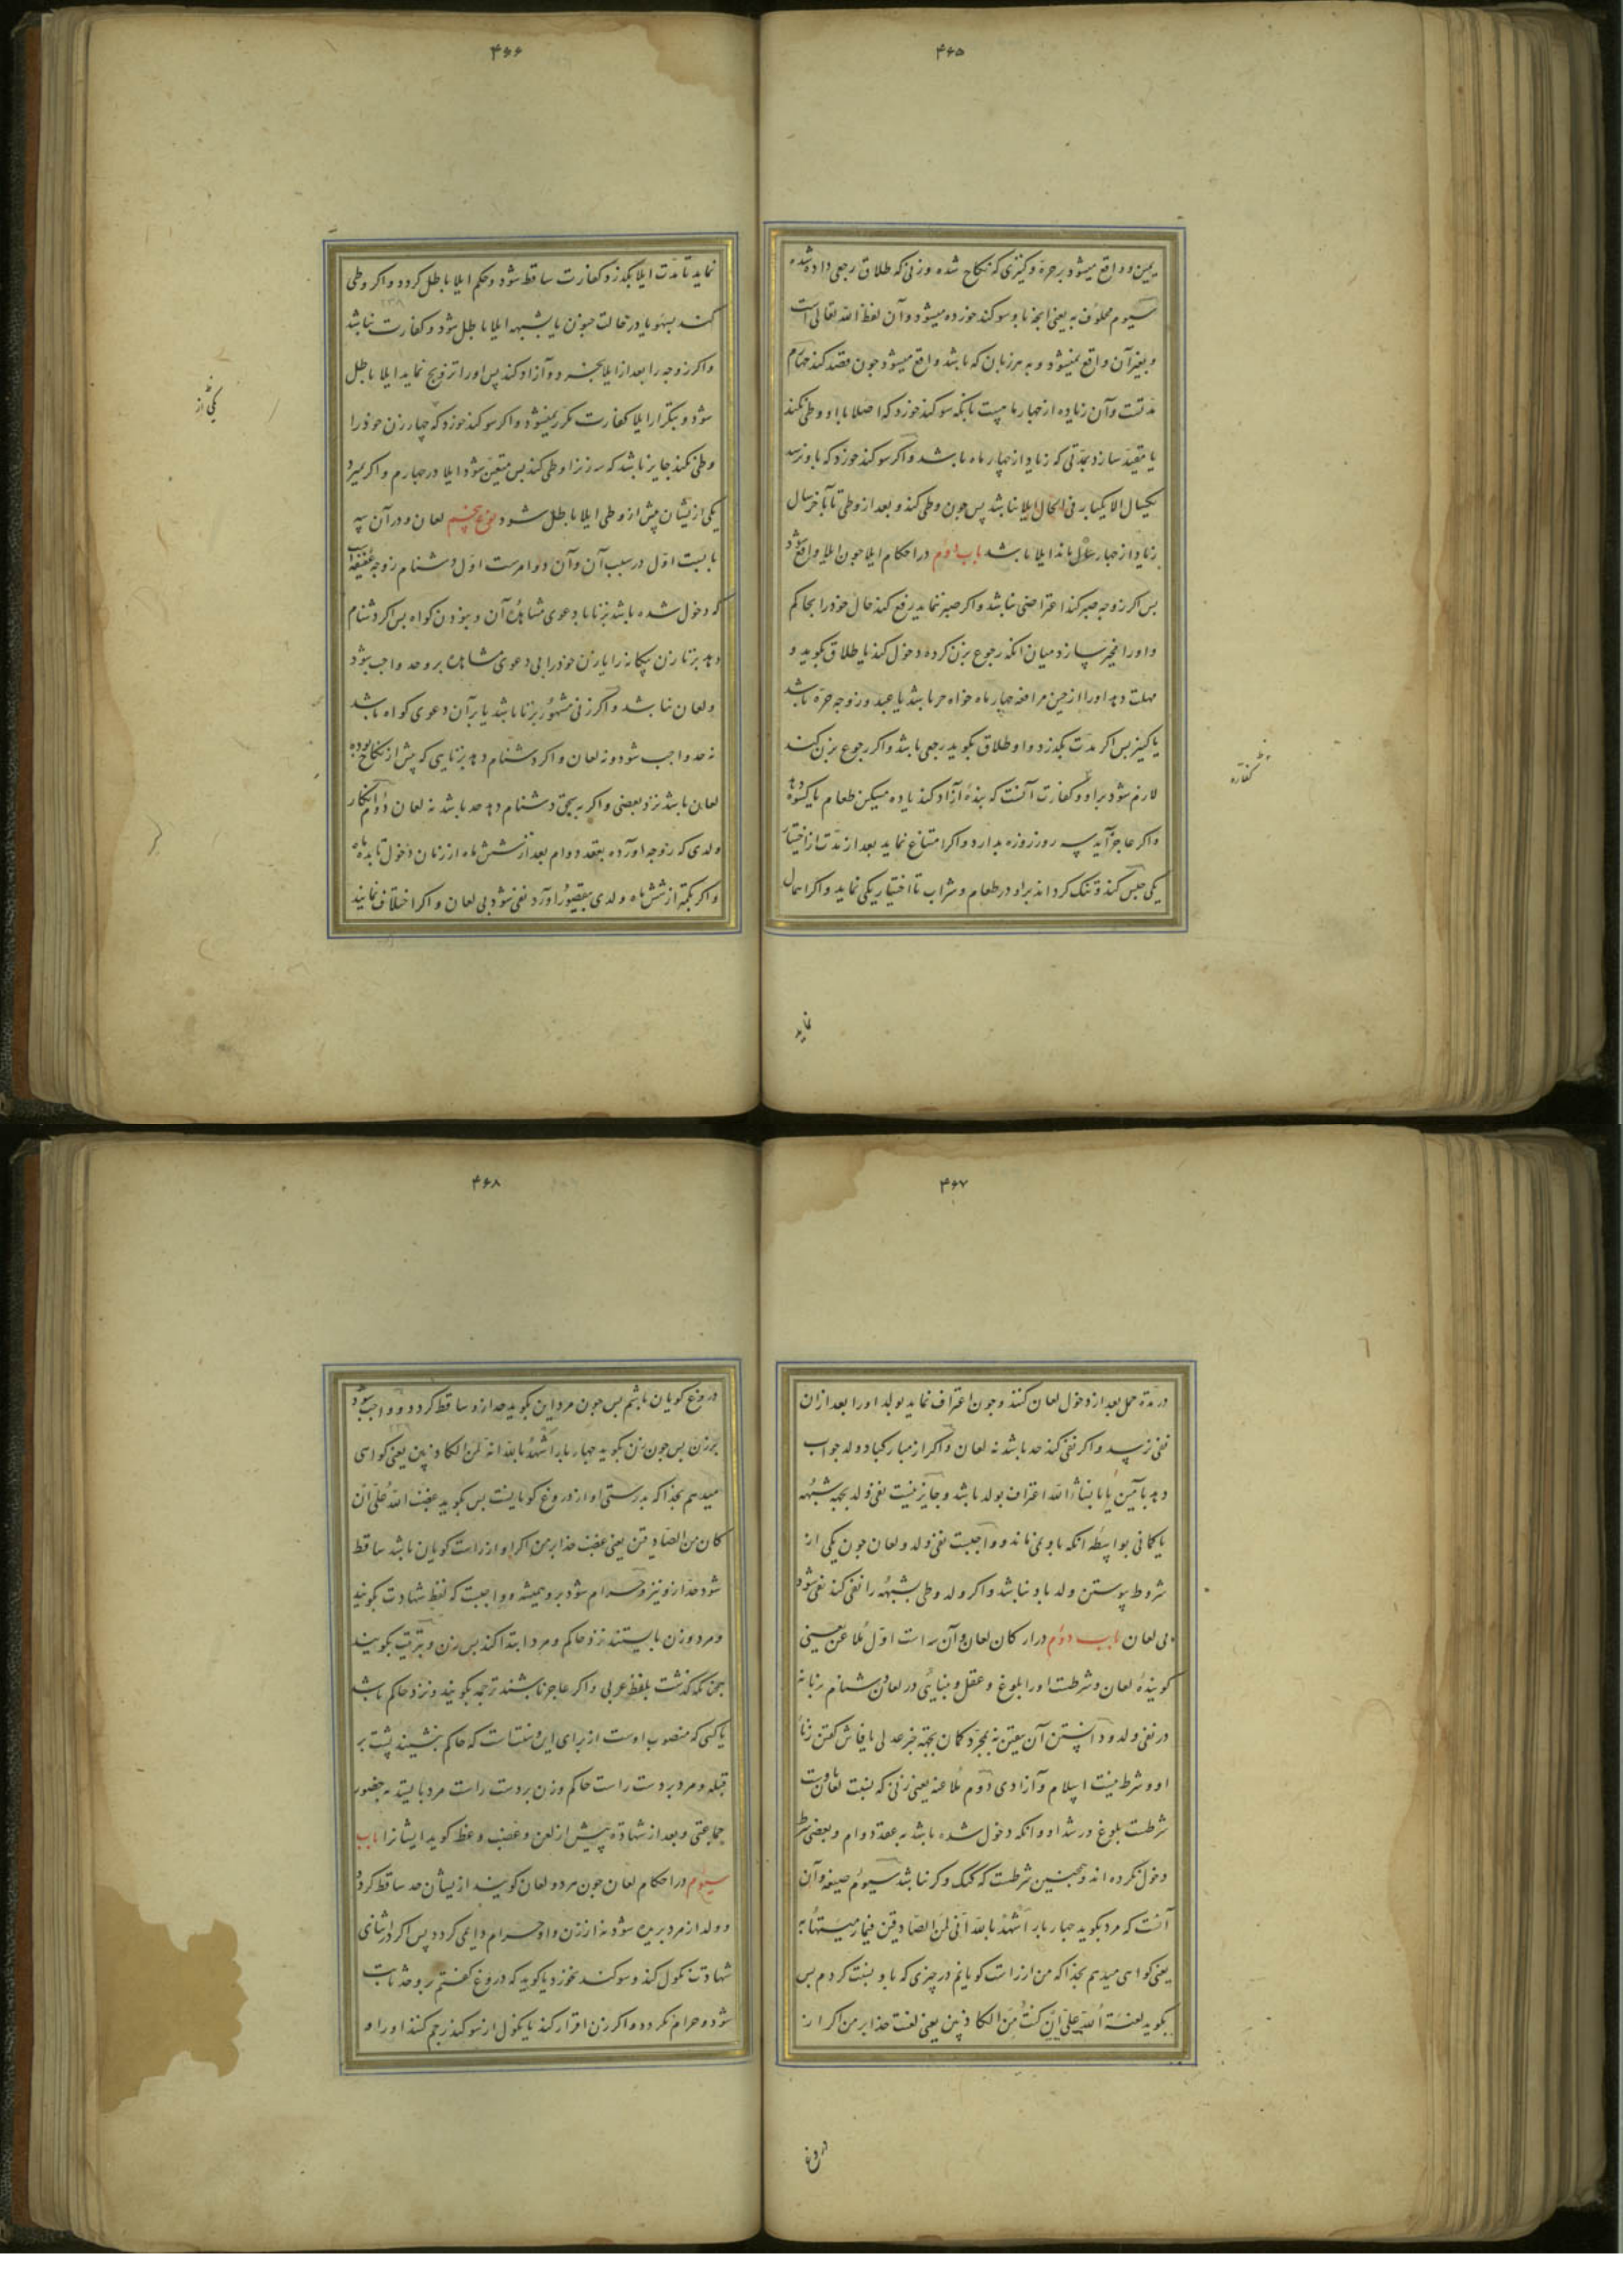 ۴۶۵
یمین و واقع میشود بر حره و کنیزی که نکاح شده و زنی که طلاق رجعی داده شده
سیوم محلوف به یعنی انچه باو سوکند خورده میشود و آن لفظ الله تعالی است
و بغیر آن واقع نمیشود و به هر زبان که باشد واقع میشود چون قصد کند چهارم
مدتست و آن زیاده از چهار ماهست بانکه سوکند خورد که اصلا با او وطی نکند
یا مقید سازد بمدتی که زیاد از چهار ماه باشد و اکر سوکند خورد که باو نرسد
یکسال الا یکبار فی الحال ایلا نباشد پس چون وطی کند و بعد از وطی تا آخر سال
زیاد از چهار ماه باند ایلا باشد باب دوم در احکام ایلا چون ایلا واقع شود
بس اکر زوجه صبر کند اعتراضی نباشد و اکر صبر ننماید رفع کند حال خود را بحاکم
و او را مخیر سازد میان انکه رجوع بزن کرده دخول کند یا طلاق بکوید و
مهلت دهد او را از حین مرافعه چهار ماه خواه حر باشد یا عبد و زوجه حره باشد
یا کنیز بس اکر مدت بکذرد و او طلاق بکوید رجعی باشد و اکر رجوع بزن کند
لازم شود بر او و کفارت آنست که بندهٔ آزاد کند یا ده مسکین طعام یا کسوه دهد
و اکر عاجز آید سه روز روزه بدارد و اکر امتناع نماید بعد از مدت از اختیار
یکی حبس کند و تنک کرداند براو در طعام و شراب تا اختیار یکی نماید و اکر اهمال
کفاره
نماید
۴۶۶
نماید تا مدت ایلا بکذرد کفارت ساقط شود و حکم ایلا باطل کردد و اکر وطی
کند بسهو یا در حالت جنون یا بشبهه ایلا باطل شود و کفارت نباشد
و اکر زوجه را بعد از ایلا بخرد و آزاد کند پس او را تزویج نماید ایلا باطل
شود و بتکرار ایلا کفارت مکرر نمیشود و اکر سوکند خورد که چهار زن خود را
وطی نکند جایز باشد که سه زن را وطی کند بس متعین شود ایلا در چهارم و اکر بمیرد
یکی از یشان پیش از وطی ایلا باطل شود نوع پنجم لعان و در آن سه
بابست اول در سبب آن و آن دو امرست اول دشنام زوجه عفیفه است
که دخول شده باشد بزنا با دعوی مشاهدهٔ آن و نبودن کواه بس اکر دشنام
دهد بزنا زن بیکانه را یا زن خود را بی دعوی مشاهده برو حد واجب شود
و لعان نباشد و اکر زنی مشهور بزنا باشد یا بر آن دعوی کواه باشد
نه حد واجب شود و نه لعان و اکر دشنام دهد بزنایی که پیش از نکاح بوده
لعان باشد نزد بعضی و اکر به سحق دشنام دهد حد باشد نه لعان دوم انکار
ولدی که زوجه آورده بعقد دوام بعد از شش ماه از زمان دخول تا بده ماه
و اکر بکمتر از شش ماه ولدی بقصور آورد نفی شود بی لعان و اکر اختلاف نمایند
یکی از
۴۶۷
در مدة حمل بعد از دخول لعان کنند و چون اعتراف نماید بولد او را بعد از ان
نفی نرسد و اکر نفی کند حد باشد نه لعان و اکر از مبارکباد ولد جواب
دهد بآمین یا بانشاءالله اعتراف بولد باشد و جایز نیست نفی ولد بجهه شبهه
یا کمانی بواسطه انکه باو می ماند و واجبست نفی ولد و لعان چون یکی از
شروط پیوستن ولد باو نباشد و اکر ولد وطی بشبهه را نفی کند نفی شود
بی لعان باب دوم در ارکان لعان و آن سه است اول ملاعن یعنی
کویندهٔ لعان و شرطست او را بلوغ و عقل و بینایی در لعان دشنام زنا نه
در نفی ولد و دانستن آن یقین نه بمجرد کمان بجهه خبر عدلی یا فاش کفتن زنا
او و شرط نیست اسلام و آزادی دوم ملاعنه یعنی زنی که نسبت لعان باوست
شرطست بلوغ و رشد او و انکه دخول شده باشد به عقد دوام و بعضی شرط
دخول نکرده اند و همچنین شرطست که کنک و کر نباشد سیوم صیغه و آن
آنست که مرد بکوید چهار بار اشهد بالله انی لمن الصادقین فیما رمیتها به
یعنی کواهی میدهم بخدا که من از راست کویانم در چیزی که باو نسبت کردم بس
بکوید لعنة الله علی ان کنت من الکاذبین یعنی لعنت خدا بر من اکر از
دروغ
۴۶۸
دروغ کویان باشم بس چون مرد این بکوید حد ازو ساقط کردد و واجب شود
بر زن بس چون زن بکوید چهار بار اشهد بالله انه لمن الکاذبین یعنی کواهی
میدهم بخدا که بدرستی او از دروغ کویانست بس بکوید غضب الله علی ان
کان من الصادقین یعنی غضب خدا بر من اکر او از راست کویان باشد ساقط
شود حد ازو نیز و حرام شود برو همیشه و واجبست که لفظ شهادت بکویند
و مرد و زن بایستند نزد حاکم و مرد ابتدا کند بس زن و بترتیب بکویند
چنانکه کذشت بلفظ عربی و اکر عاجز باشند ترجمه بکویند و نزد حاکم باشد
یا کسی که منصوب اوست از برای این و سنتست که حاکم بنشیند پشت بر
قبله و مرد بر دست راست حاکم و زن بر دست راست مرد بایستد به حضور
جماعتی و بعد از شهادة پیش از لعن و غضب وعظ کوید ایشانرا باب
سیوم در احکام لعان چون مرد و لعان کویند از یشان حد ساقط کردد
و ولد از مرد بریده شود نه از زن و او حرام دایمی کردد پس اکر در اثنای
شهادت نکول کند و سوکند نخورد یا کوید که دروغ کفتم برو حد ثابت
شود و حرام نکردد و اکر زن اقرار کند یا نکول از سوکند رجم کنند او را و